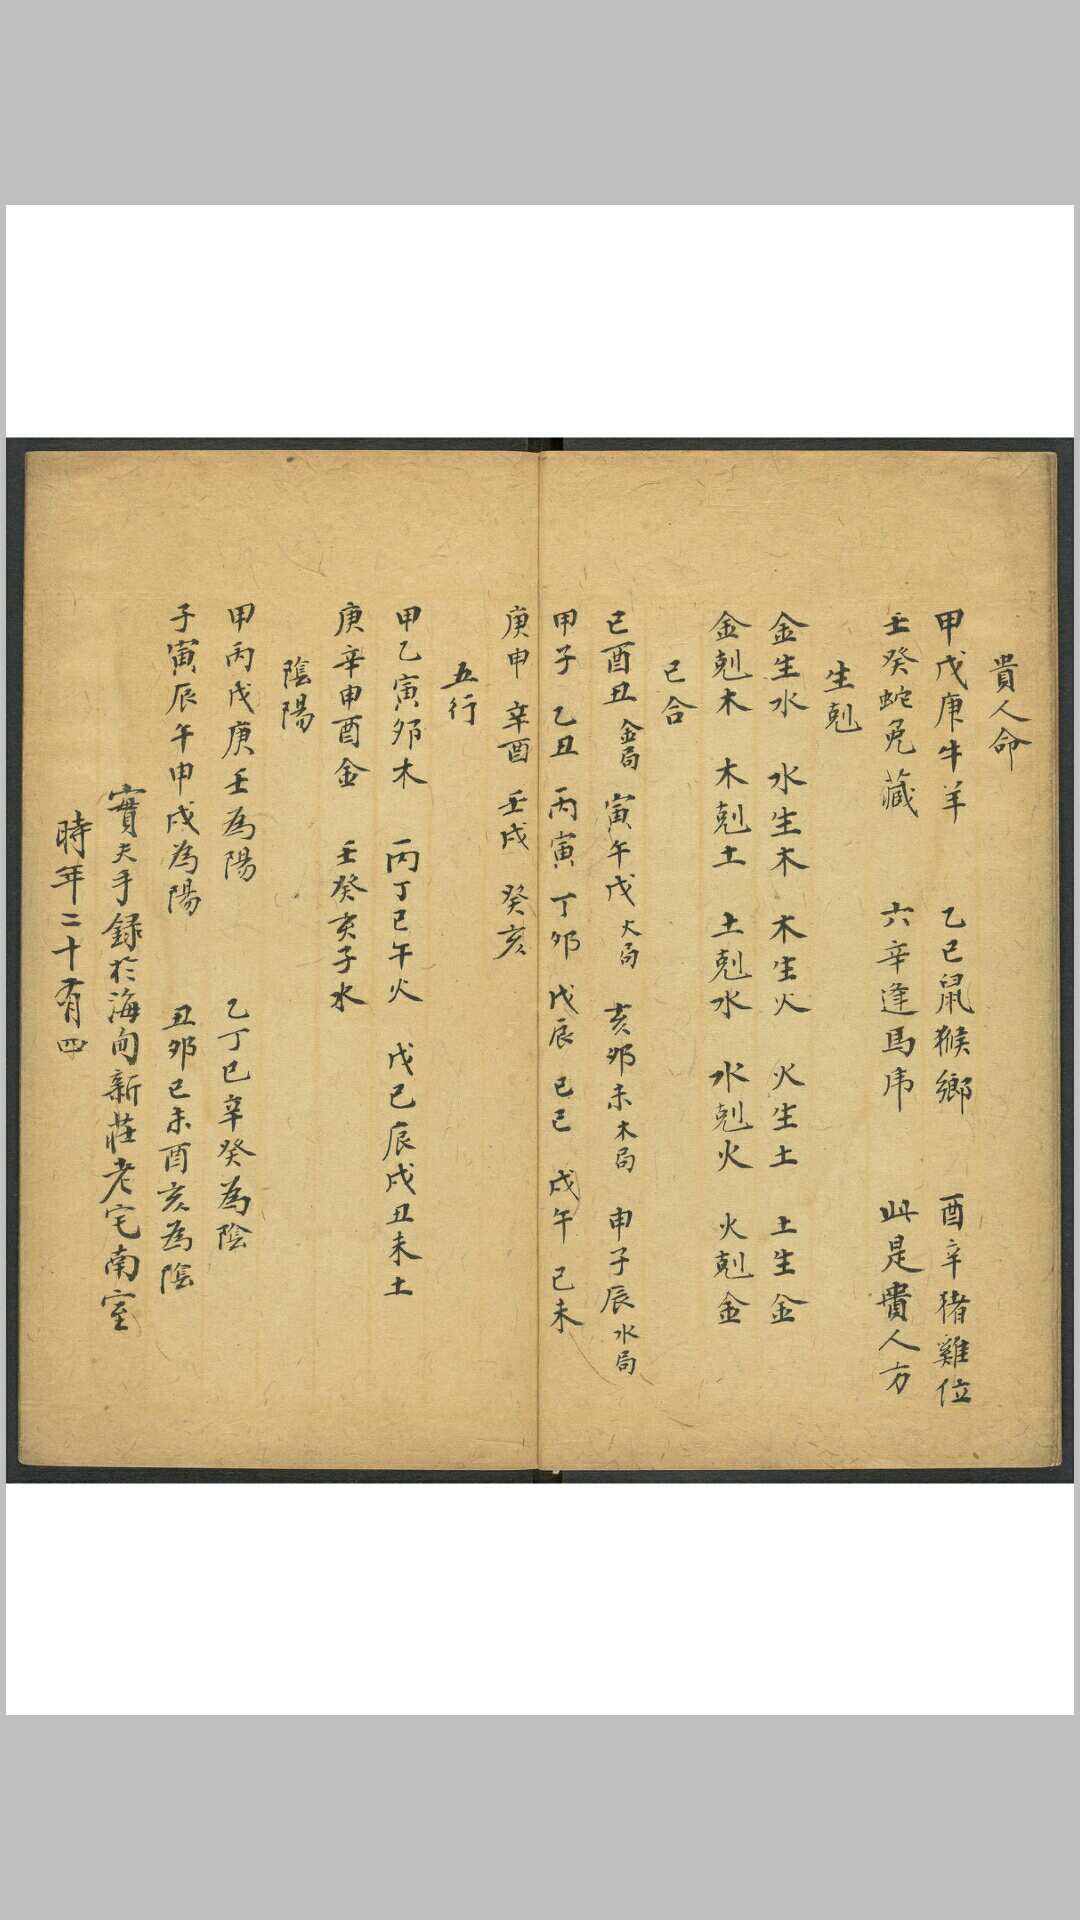 貴人命
甲戊庚牛羊　乙己鼠猴鄉　酉辛猪雞位
壬癸蛇兔藏　六辛逢馬虎　此是貴人方
生剋
金生水　水生木　木生火　火生土　土生金
金剋木　木剋土　土剋水　水剋火　火剋金
已合
巳酉丑金局　寅午戊火局　亥夘未木局　申子辰水局
甲子　乙丑　丙寅　丁夘　戊辰　己巳　戊午　己未
庚申　辛酉　壬戌　癸亥
五行
甲乙寅夘木　丙丁巳午火　戊己辰戌丑未土
庚辛申酉金　壬癸亥子水
陰陽
甲丙戊庚壬為陽　乙丁己辛癸為陰
子寅辰午申戌為陽　丑夘巳未酉亥為陰
實夫手録於海甸新莊老宅南室
時年二十有四